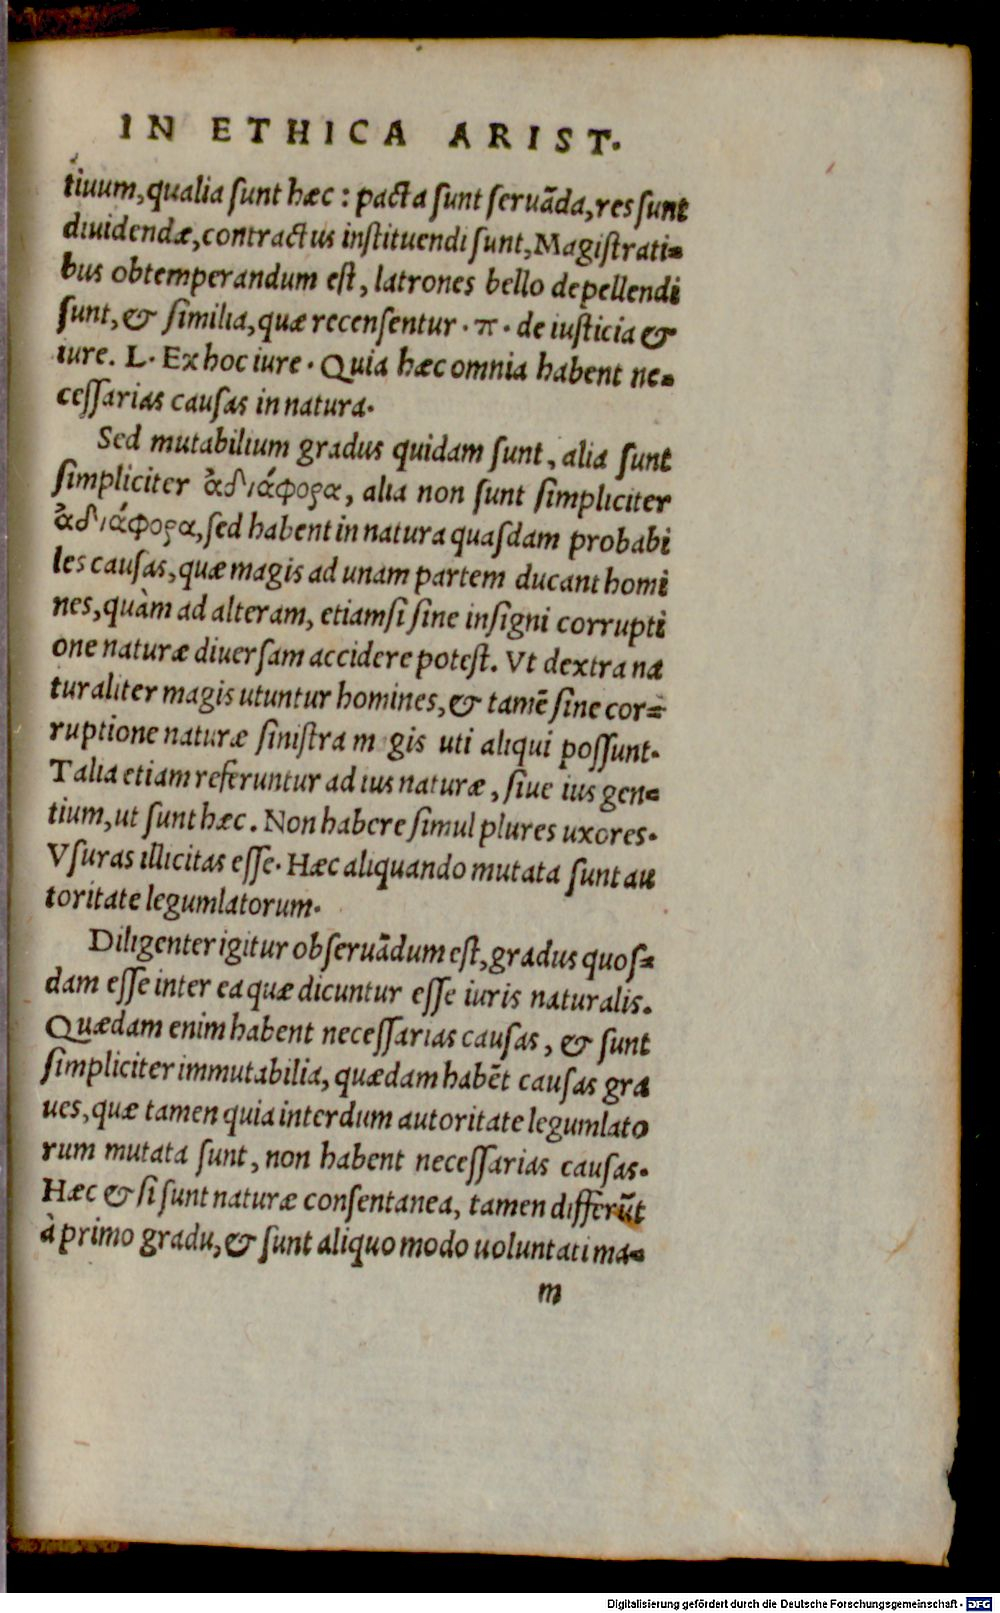 IN ETHICA ARIST.
tiuum, qualia ſunt hæc : pacta ſunt ſeruāda, res ſunt
diuidendæ, contractus inſtituendi ſunt, Magiſtrati=
bus obtemperandum eſt, latrones bello depellendi
ſunt, & ſimilia, quæ recenſentur · π · de iuſticia &
iure. L. Ex hoc iure. Quia hæc omnia habent ne=
ceſſarias cauſas in natura.
Sed mutabilium gradus quidam ſunt, alia ſunt
ſimpliciter ἀδιάφορα, alia non ſunt ſimpliciter
ἀδιάφορα, ſed habent in natura quaſdam probabi
les cauſas, quæ magis ad unam partem ducant homi
nes, quàm ad alteram, etiamſi ſine inſigni corrupti
one naturæ diuerſam accidere poteſt. Vt dextra na
turaliter magis utuntur homines, & tamē ſine cor=
ruptione naturæ ſiniſtra m gis uti aliqui poſſunt.
Talia etiam referuntur ad ius naturæ, ſiue ius gen=
tium, ut ſunt hæc. Non habere ſimul plures uxores.
Vſuras illicitas eſſe. Hæc aliquando mutata ſunt au
toritate legumlatorum.
Diligenter igitur obſeruādum eſt, gradus quoſ=
dam eſſe inter ea quæ dicuntur eſſe iuris naturalis.
Quædam enim habent neceſſarias cauſas, & ſunt
ſimpliciter immutabilia, quædam habēt cauſas gra
ues, quæ tamen quia interdum autoritate legumlato
rum mutata ſunt, non habent neceſſarias cauſas.
Hæc & ſi ſunt naturæ conſentanea, tamen differūt
à primo gradu, & ſunt aliquo modo uoluntati ma=
m
Digitalisierung gefördert durch die Deutsche Forschungsgemeinschaft - DFG